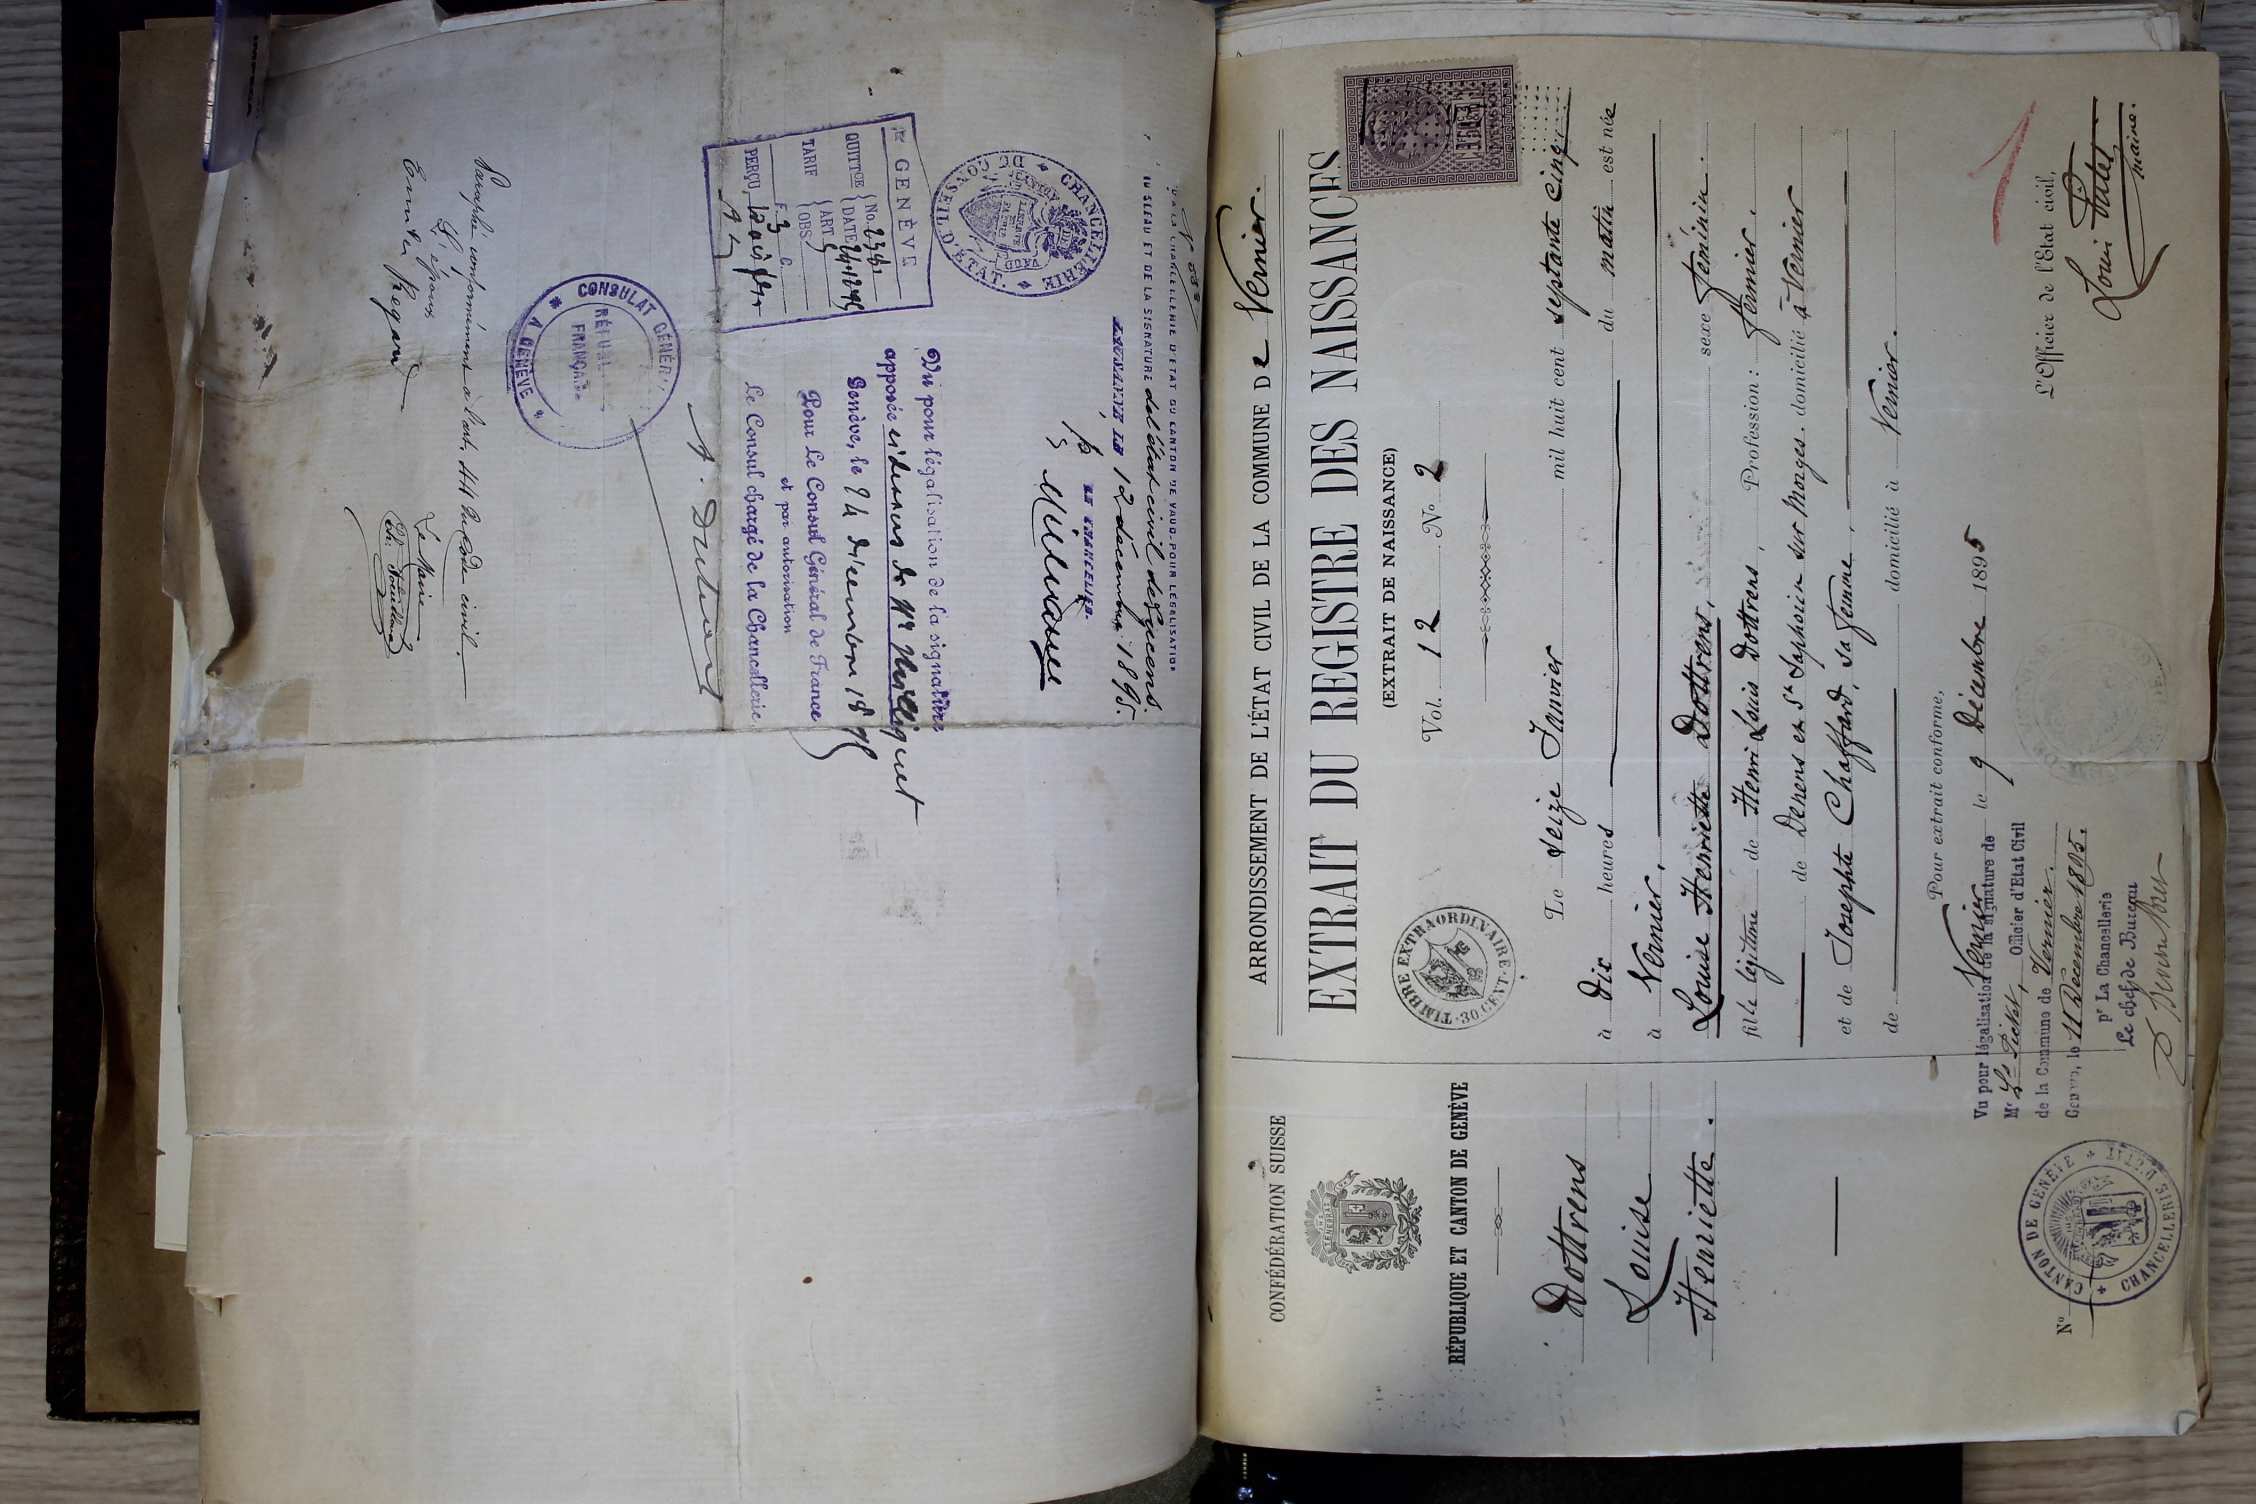 DE LA CHANCELLERIE D'ETAT DU CANTON DE VAUD, POUR LÉGALISATION
DU SCEAU ET DE LA SIGNATURE de l'état civil de
LAUSANNE LE 12 décembre 1895.
LE CHANCELIER.
CHANCELLERIE
DU CONSEIL D'ÉTAT
CANTON DE VAUD
LIBERTÉ ET PATRIE
GENÈVE
QUITTCE No.
DATE
TARIF ART
OBS
F. 3 C.
PERÇU
Vu pour légalisation de la signature
apposée ci dessus de Mr
Genève, le 24 décembre 1895
Pour Le Consul Général de France
et par autorisation
Le Consul chargé de la Chancellerie
CONSULAT GÉNÉRAL
A GENÈVE
FRANÇAISE
Paraphé conformément à l'art. 44 du code civil.
L'époux
Le Maire
CONFÉDÉRATION SUISSE
RÉPUBLIQUE ET CANTON DE GENÈVE
Dottrens
Louise
Henriette.
No
CANTON DE GENÈVE
CHANCELLERIE D'ÉTAT
ARRONDISSEMENT DE L'ÉTAT CIVIL DE LA COMMUNE DE Vernier.
EXTRAIT DU REGISTRE DES NAISSANCES
(EXTRAIT DE NAISSANCE)
Vol. 12 No 2
TIMBRE EXTRAORDINAIRE
30 CENT.
Le seize Janvier mil huit cent septante cinq
à dix heures du matin est née
à Vernier,
Louise Henriette Dottrens, sexe féminin.
fille légitime de Henri Louis Dottrens, Profession: fermier.
de Denens et St Saphorin sur Morges. domicilié à Vernier
et de Josephte Chaffard, sa femme,
de domicilié à Vernier.
Pour extrait conforme,
Vernier le 9 Décembre 1895
L'Officier de l'Etat civil,
Louis Pictet
maire.
Vu pour légalisation de la signature de
Mr Ls Pictet, Officier d'Etat Civil
de la Commune de Vernier.
Genève, le 11 Décembre 1895.
pr La Chancellerie
Le chef de Bureau